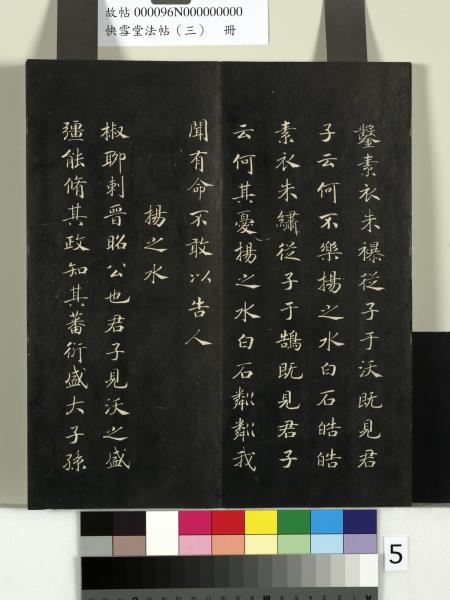 故帖 000096N000000000
快雪堂法帖（三） 冊
鑿素衣朱襮從子于沃既見君
子云何不樂揚之水白石皓皓
素衣朱繡從子于鵠既見君子
云何其憂揚之水白石粼粼我
聞有命不敢以告人
揚之水
椒聊刺晉昭公也君子見沃之盛
彊能脩其政知其蕃衍盛大子孫
5